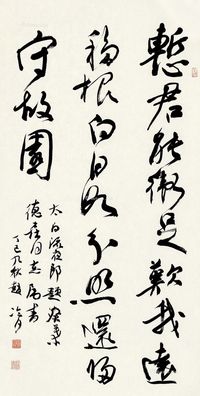 慙君能衛足歎我遠
移根白日如分照還歸
守故園
太白流夜郎題葵葉
德森同志属書
丁巳